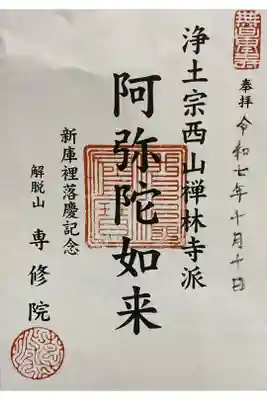 奉拝
令和七年十月十日
浄土宗西山禅林寺派
阿弥陀如来
新庫裡落慶記念
解脱山
専修院